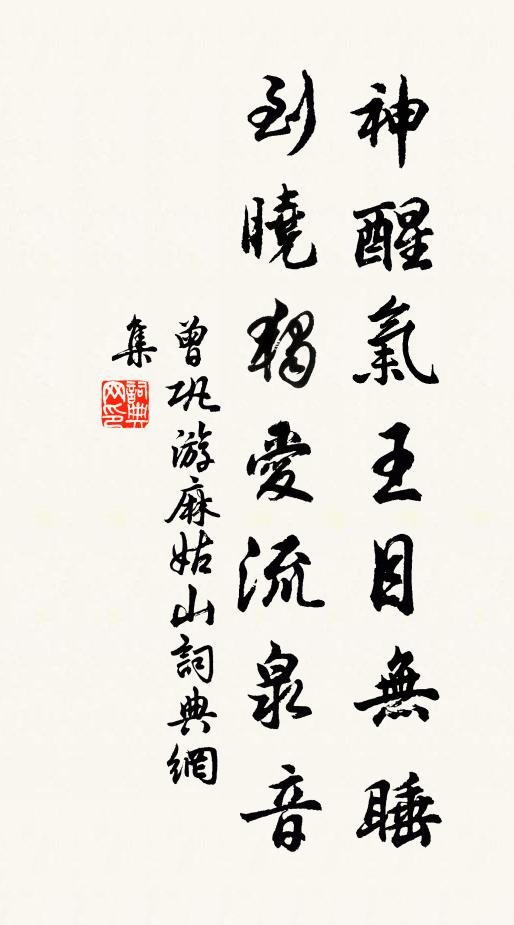 神醒氣王目無睡
到曉獨愛流泉音
曾巩游麻姑山詞典網
集
詞典网印